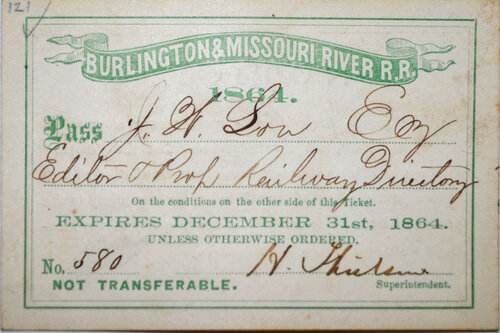 121
BURLINGTON & MISSOURI RIVER R.R.
1864.
Pass J. W. Low Esq
Editor & Prop Railway Directory
On the conditions on the other side of this Ticket.
EXPIRES DECEMBER 31st, 1864.
UNLESS OTHERWISE ORDERED.
No. 580 H. Thielsen
NOT TRANSFERABLE. Superintendent.